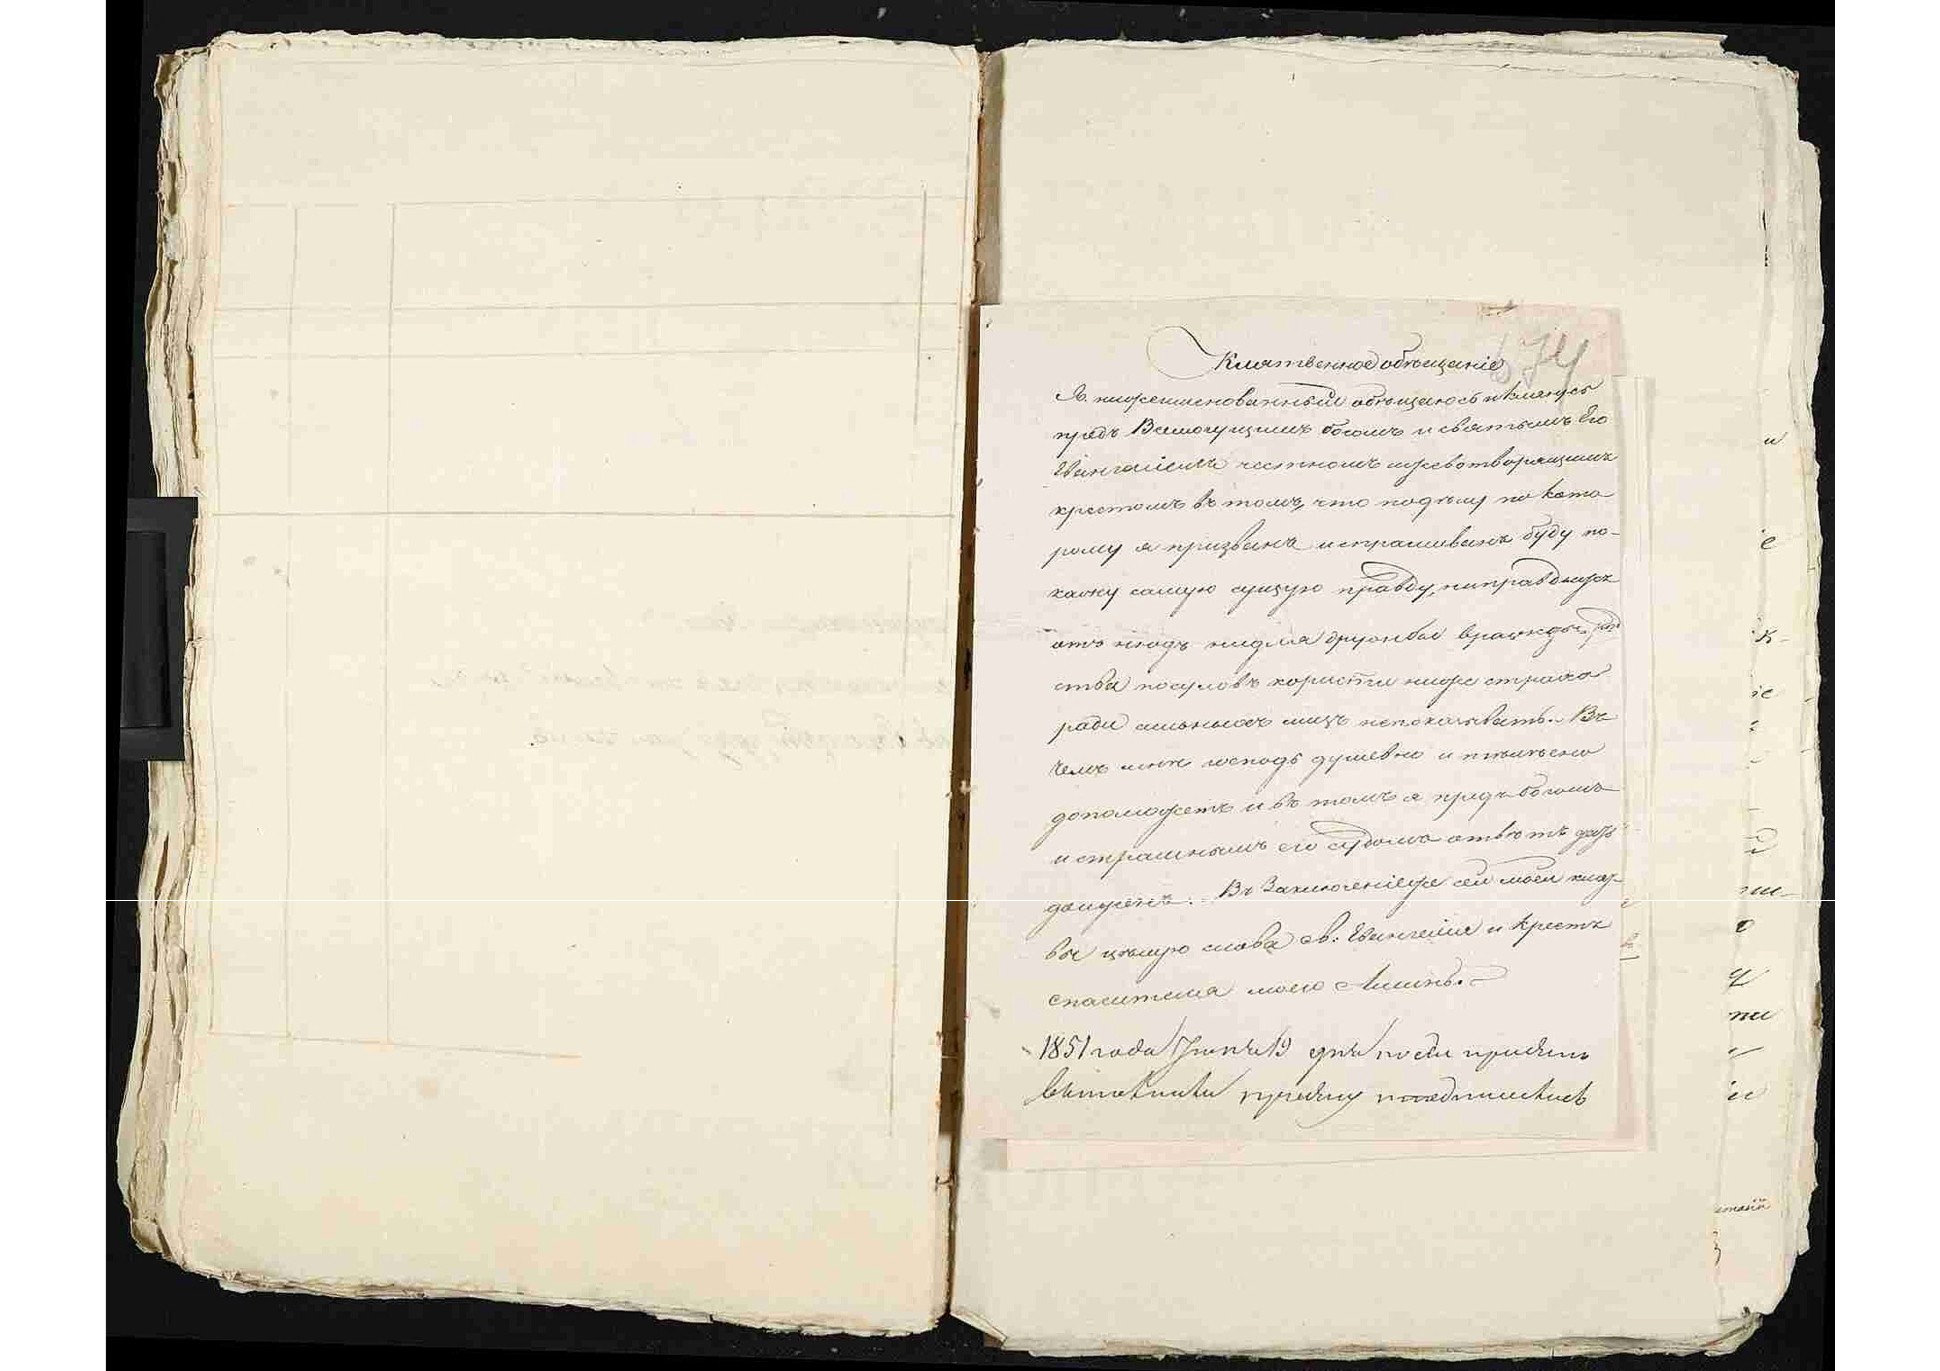 674
Клятвенное обѣщаніе
Я нижеименованный обѣщаюсь и клянусь
предъ Всемогущимъ богомъ и святымъ Его
Евангеліемъ честномъ животворящимъ
крестомъ въ томъ, что по дѣлу по кото
рому я призванъ и спрашиванъ буду по-
кажу самую сущую правду, и неправды ни
отъ нюдъ ни для дружбы вражды
ства посуловъ корысти ниже страха
ради сильныхъ лицъ непоказывать. Въ
чемъ мнѣ господь душевно и тѣлѣсно
допоможетъ и въ томъ я предъ богомъ
и страшнымъ его судомъ отвѣтъ дать
долженъ. Въ Заключеніеже сей моей клят
вы цѣлую слова Св: Евангелія и Крестъ
спасителя моего Аминь.
1851 года Іюня 19 дня по сѣи присягѣ
присягу